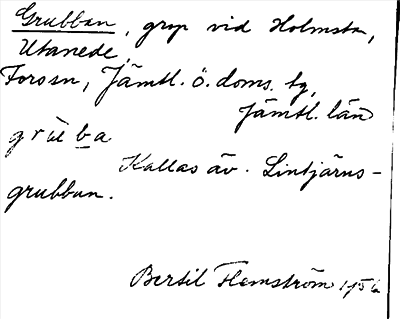 Grubban, grop vid Holmsta,
Utanede,
Fors sn, Jämtl. ö. doms. tg,
Jämtl. län
grùb̲a
Kallas äv. Lintjärns-
grubban.
Bertil Flemström 1956